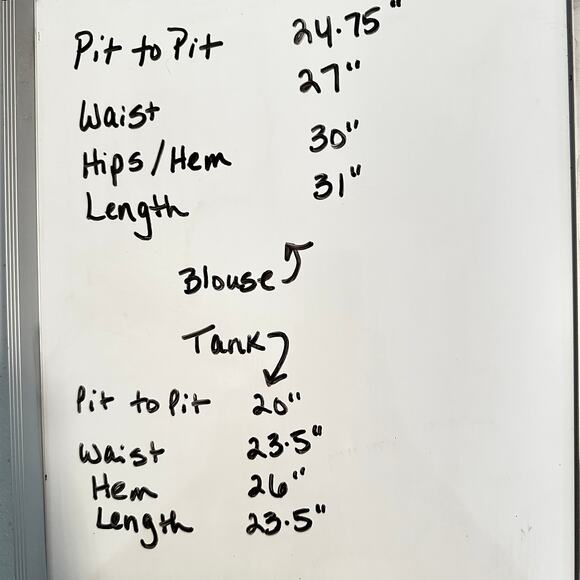 Pit to Pit 24.75"
Waist 27"
Hips/Hem 30"
Length 31"
Blouse
Tank
Pit to Pit 20"
Waist 23.5"
Hem 26"
Length 23.5"